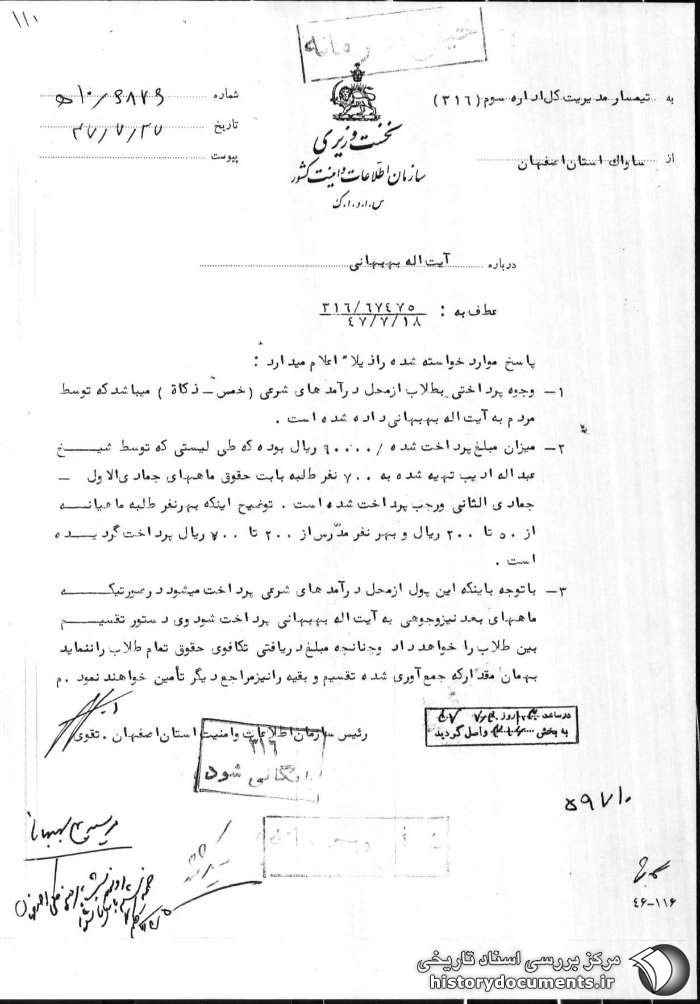 ۱۱۰
خیلی محرمانه
به تیمسار مدیریت کل اداره سوم (۳۱۶)
از ساواک استان اصفهان
نخست وزیری
سازمان اطلاعات و امنیت کشور
س.ا.و.ا.ک
شماره
تاریخ ۴۷/۷/۲۷
پیوست
درباره آیت اله بهبهانی
عطف به : ۳۱۶/۶۷۴۷۵
۴۷/۷/۱۸
پاسخ موارد خواسته شده را ذیلا" اعلام میدارد :
۱- وجوه پرداختی بطلاب از محل درآمدهای شرعی (خمس - ذکاة ) میباشد که توسط
مردم به آیت اله بهبهانی داده شده است .
۲- میزان مبلغ پرداخت شده /۹۰۰۰۰ ریال بوده که طی لیستی که توسط شیخ
عبداله ادیب تهیه شده به ۷۰۰ نفر طلبه بابت حقوق ماههای جمادی الاول -
جمادی الثانی و رجب پرداخت شده است . توضیح اینکه بهر نفر طلبه ماهیانه
از ۵۰ تا ۲۰۰ ریال و بهر نفر مدرّس از ۲۰۰ تا ۷۰۰ ریال پرداخت گردیده
است .
۳- با توجه باینکه این پول از محل درآمدهای شرعی پرداخت میشود در صورتیکه
ماههای بعد نیز وجوهی به آیت اله بهبهانی پرداخت شود وی دستور تقسیم
بین طلاب را خواهد داد و چنانچه مبلغ دریافتی تکافوی حقوق تمام طلاب را ننماید
بهمان مقدار که جمع آوری شده تقسیم و بقیه را نیز مراجع دیگر تأمین خواهند نمود . م
رئیس سازمان اطلاعات و امنیت استان اصفهان . تقوی
در ساعت روز
به بخش واصل گردید
۳۱۶
بایگانی شود
۵۹۷۱۰
۴۶-۱۱۶
مرکز بررسی اسناد تاریخی
historydocuments.ir